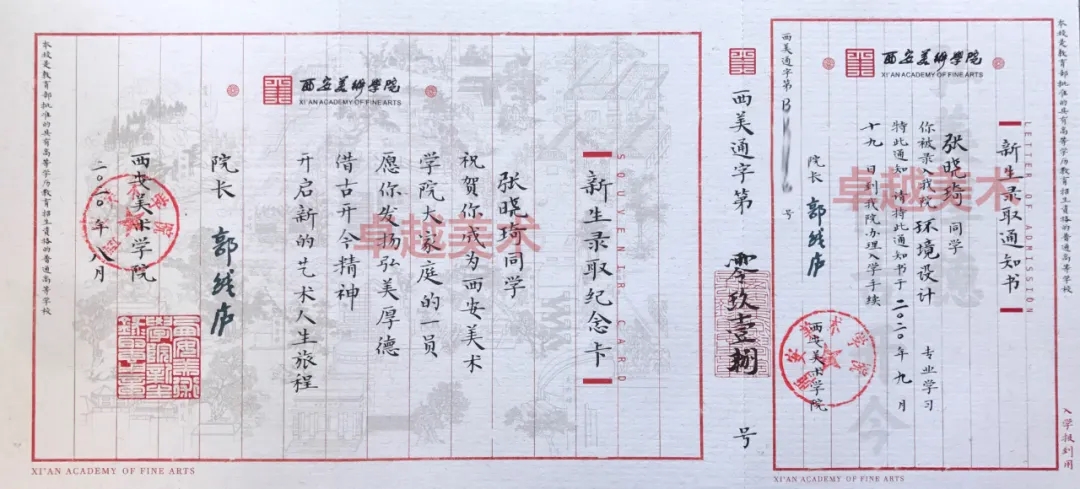 本校是教育部批准的具有高等学历教育招生资格的普通高等学校
LETTER OF ADMISSION
新生录取通知书
入学报到用
西安美术学院
XI'AN ACADEMY OF FINE ARTS
张晓琦同学
你被录入我院环境设计 专业学习
特此通知 请持此通知书于二〇二〇年九月
十九日到我院办理入学手续
院长 郭线庐
西安美术学院
西美通字第B 号
卓越美术
XI'AN ACADEMY OF FINE ARTS
西美通字第 零玖壹捌 号
SOUVENIR CARD
新生录取纪念卡
西安美术学院
XI'AN ACADEMY OF FINE ARTS
张晓琦同学
祝贺你成为西安美术
学院大家庭的一员
愿你发扬弘美厚德
借古开今精神
开启新的艺术人生旅程
院长 郭线庐
西安美术学院
二〇二〇年八月
本校是教育部批准的具有高等学历教育招生资格的普通高等学校
卓越美术
XI'AN ACADEMY OF FINE ARTS